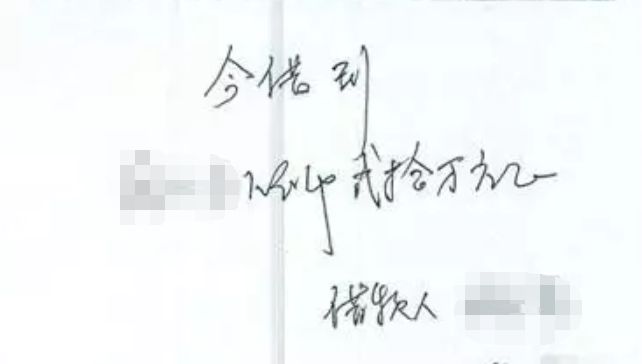 今借到
人民币贰拾万元正
借款人